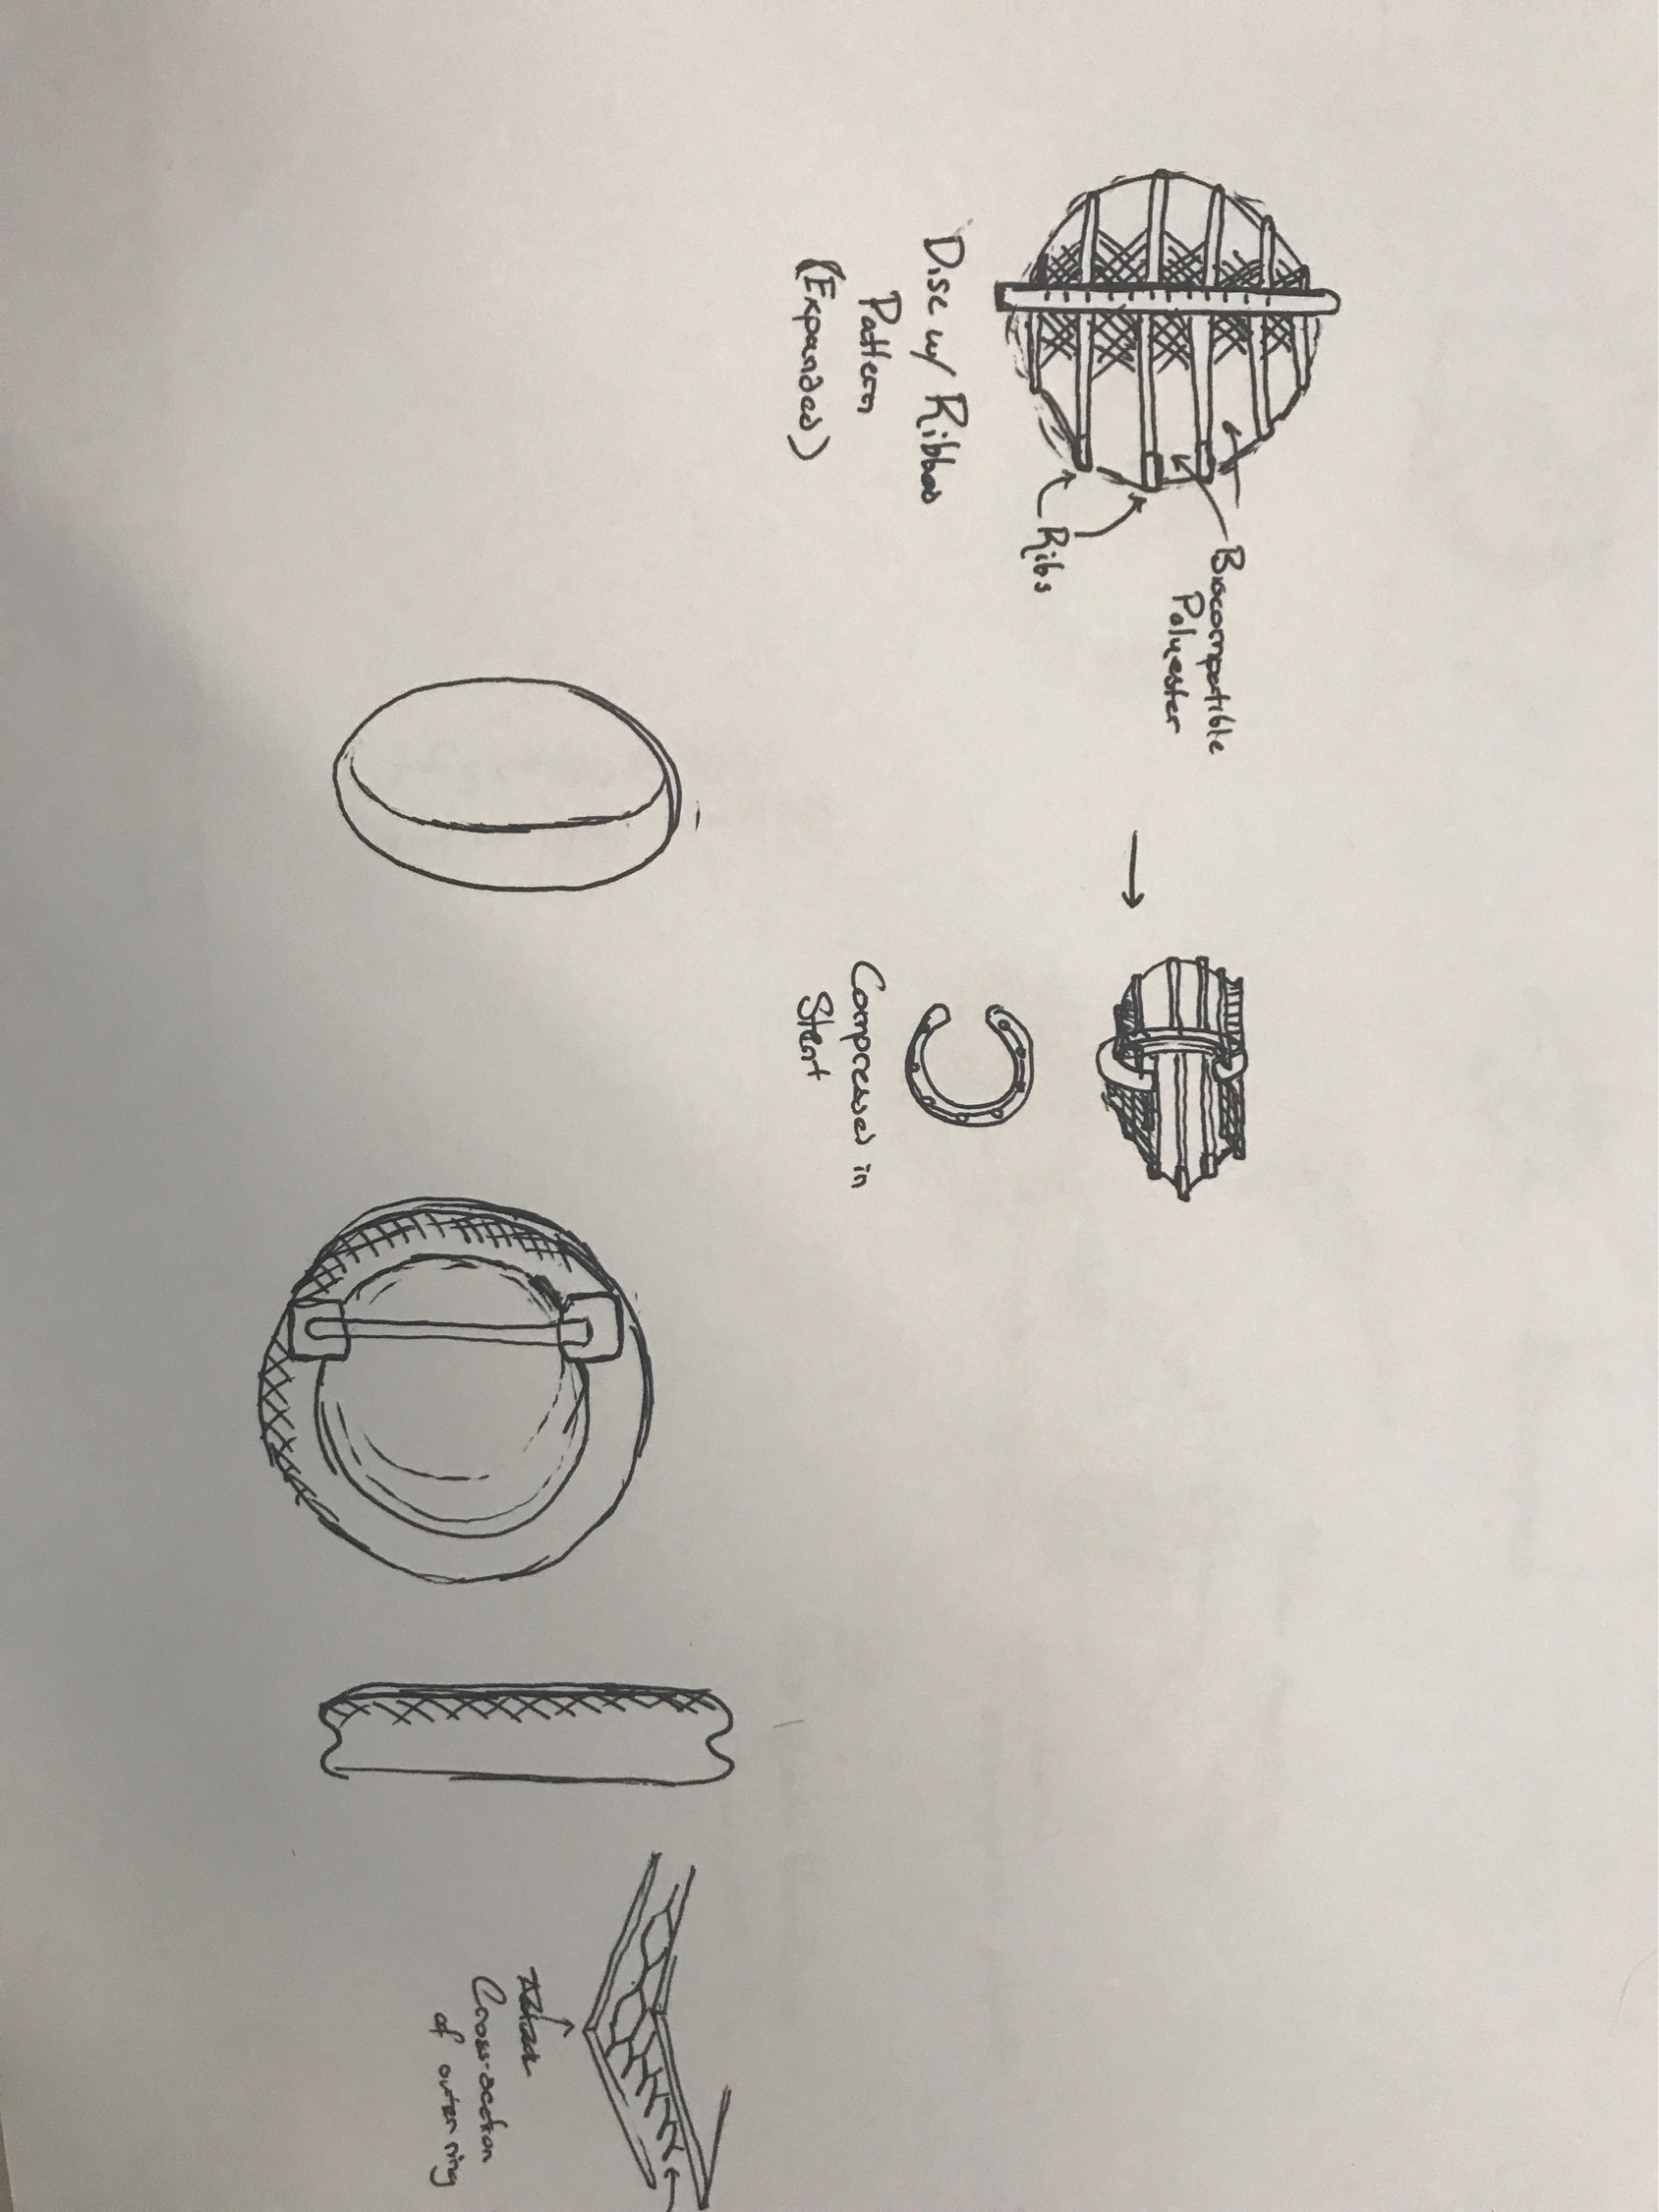 Biocompatible
Polyester
Ribs
Disc w/ Ribbed
Pattern
(Expanded)
Compressed in
Stent
Cross-section
of outer ring